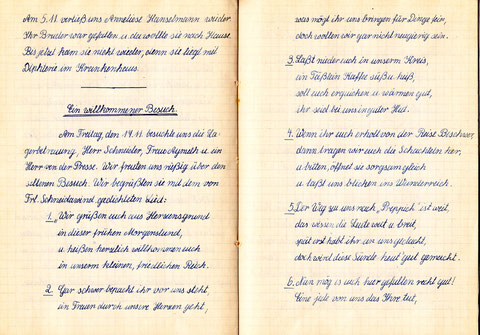 Am 5.11. verließ uns Anneliese Hanselmann wieder.
Ihr Bruder war gefallen u. da wollte sie nach Hause.
Bis jetzt kam sie nicht wieder, denn sie liegt mit
Diphterie im Krankenhaus.
Ein willkommener Besuch.
Am Freitag, den 17.11. besuchte uns die La-
gerbetreuung, Herr Schneider, Frau u. ein
Herr von der Presse. Wir freuten uns riesig über den
seltenen Besuch. Wir begrüßten sie mit dem von
Frl. Schneidawind gedichteten Lied:
1. "Wir grüßen euch aus Herzensgrund
in dieser frühen Morgenstund,
u. heißen herzlich willkommen euch
in unserem kleinen, friedlichen Reich.
2. Gar schwer bepackt ihr vor uns steht,
ein Freuen durch unsere Herzen geht,
was mögt ihr uns bringen für Dinge fein,
doch wollen wir gar nicht neugierig sein.
3. Laßt nieder euch in unserm Kreis,
ein Täßlein Kaffee süß u. heiß,
soll euch erquicken u. wärmen gut,
ihr seid bei uns in guter Hut.
4. Wenn ihr euch erholt von der Reise Beschwer,
dann bragen wir euch die Schachteln her,
u. bitten, öffnet sie sorgsam gleich
u. laßt uns blicken ins Wunderreich.
5. Der Weg zu uns nach "Preppich" ist weit,
das wissen die Leute weit u. breit,
spät erst habt ihr an uns gedacht,
doch wird diese Sünde heut' gut gemacht.
6. Nun mög es euch hier gefallen recht gut!
Eine jede von uns das Ihre tut,